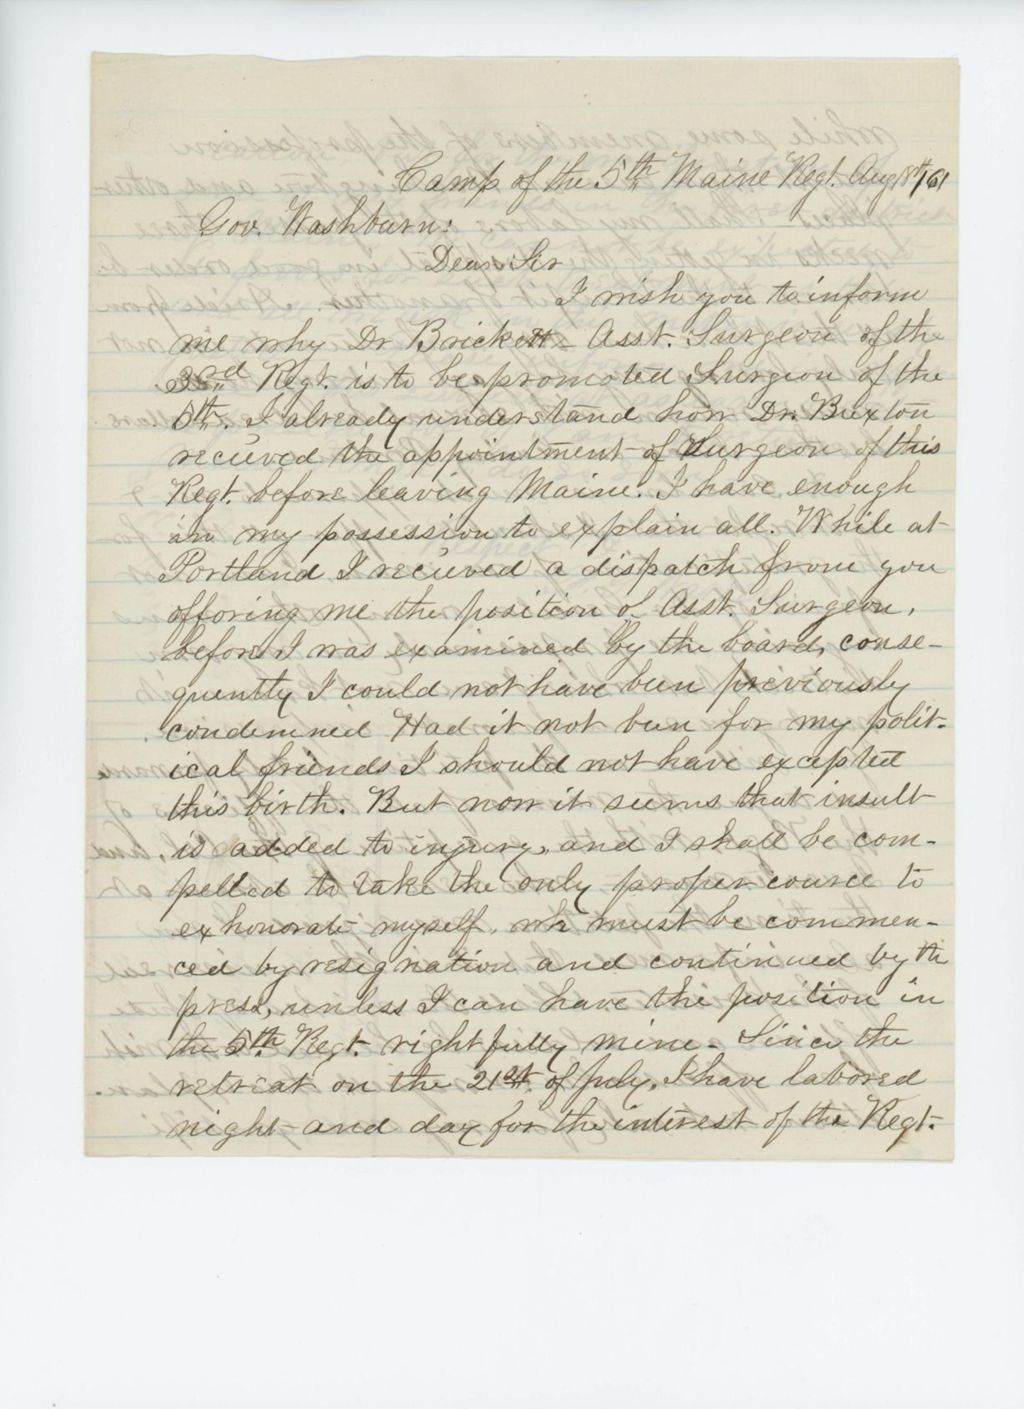 Camp of the 5th Maine Regt. Aug 18th/61
Gov. Washburn:
Dear Sir
I wish you to inform
me why Dr Brickett Asst. Surgeon of the
3rd Regt. is to be promoted Surgeon of the
5th. I already understand how Dr. Buxton
recieved the appointment of Surgeon of this
Regt. before leaving Maine. I have enough
in my possession to explain all. While at
Portland I recieved a dispatch from you
offoring me the position of Asst. Surgeon,
before I was examined by the board, conse-
quently I could not have been previously
condemned Had it not been for my polit-
ical friends I should not have excepted
this birth. But now it seems that insult
is added to injury, and I shall be com-
pelled to take the only proper cource to
exhonorate myself, wh must be commen-
ced by resignation and continued by th
press, unless I can have the position in
the 5th. Regt. rightfully mine. Since the
retreat on the 21st. of July, I have labored
night and day for the interest of the Regt.